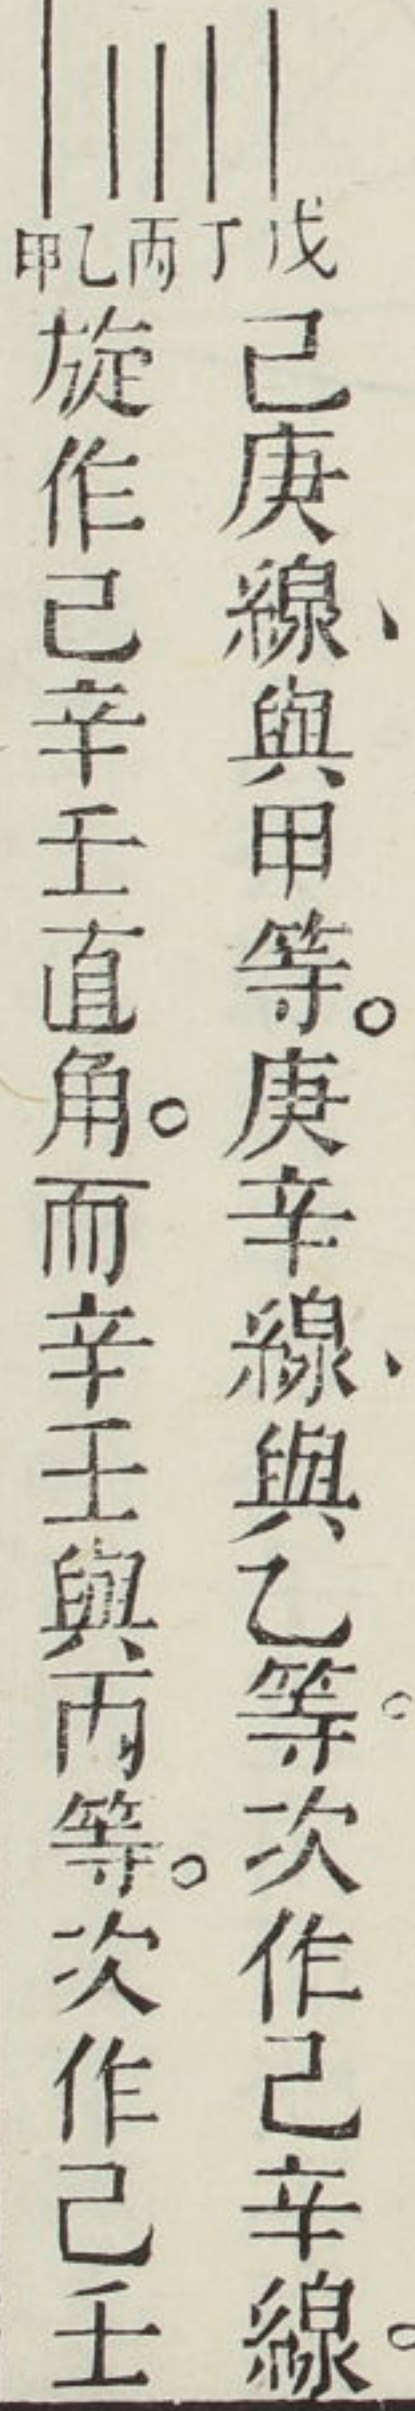 戊丁丙乙甲
己庚線、與甲等。庚辛線、與乙等。次作己辛線。
旋作己辛壬直角。而辛壬與丙等。次作己壬